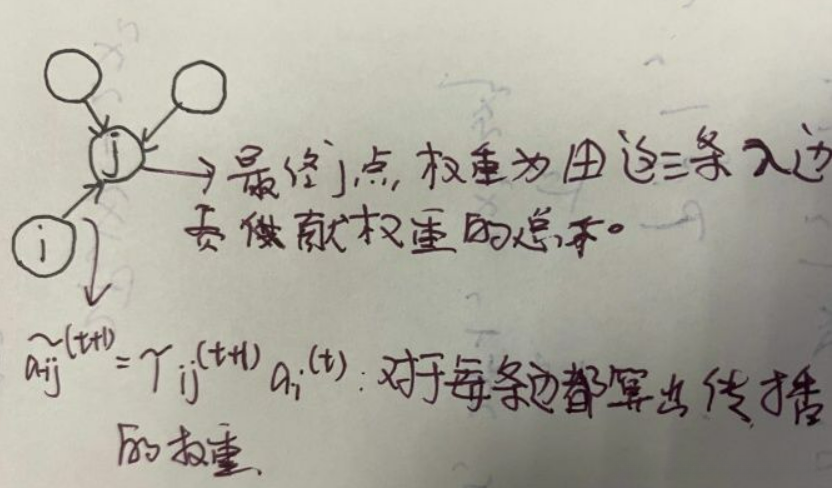 j
→最终j点,权重为由这三条入边
贡献权重的总和。
i
ã_{ij}^{(t+1)} = γ_{ij}^{(t+1)} a_i^{(t)} : 对于每条边都算出传播
的权重